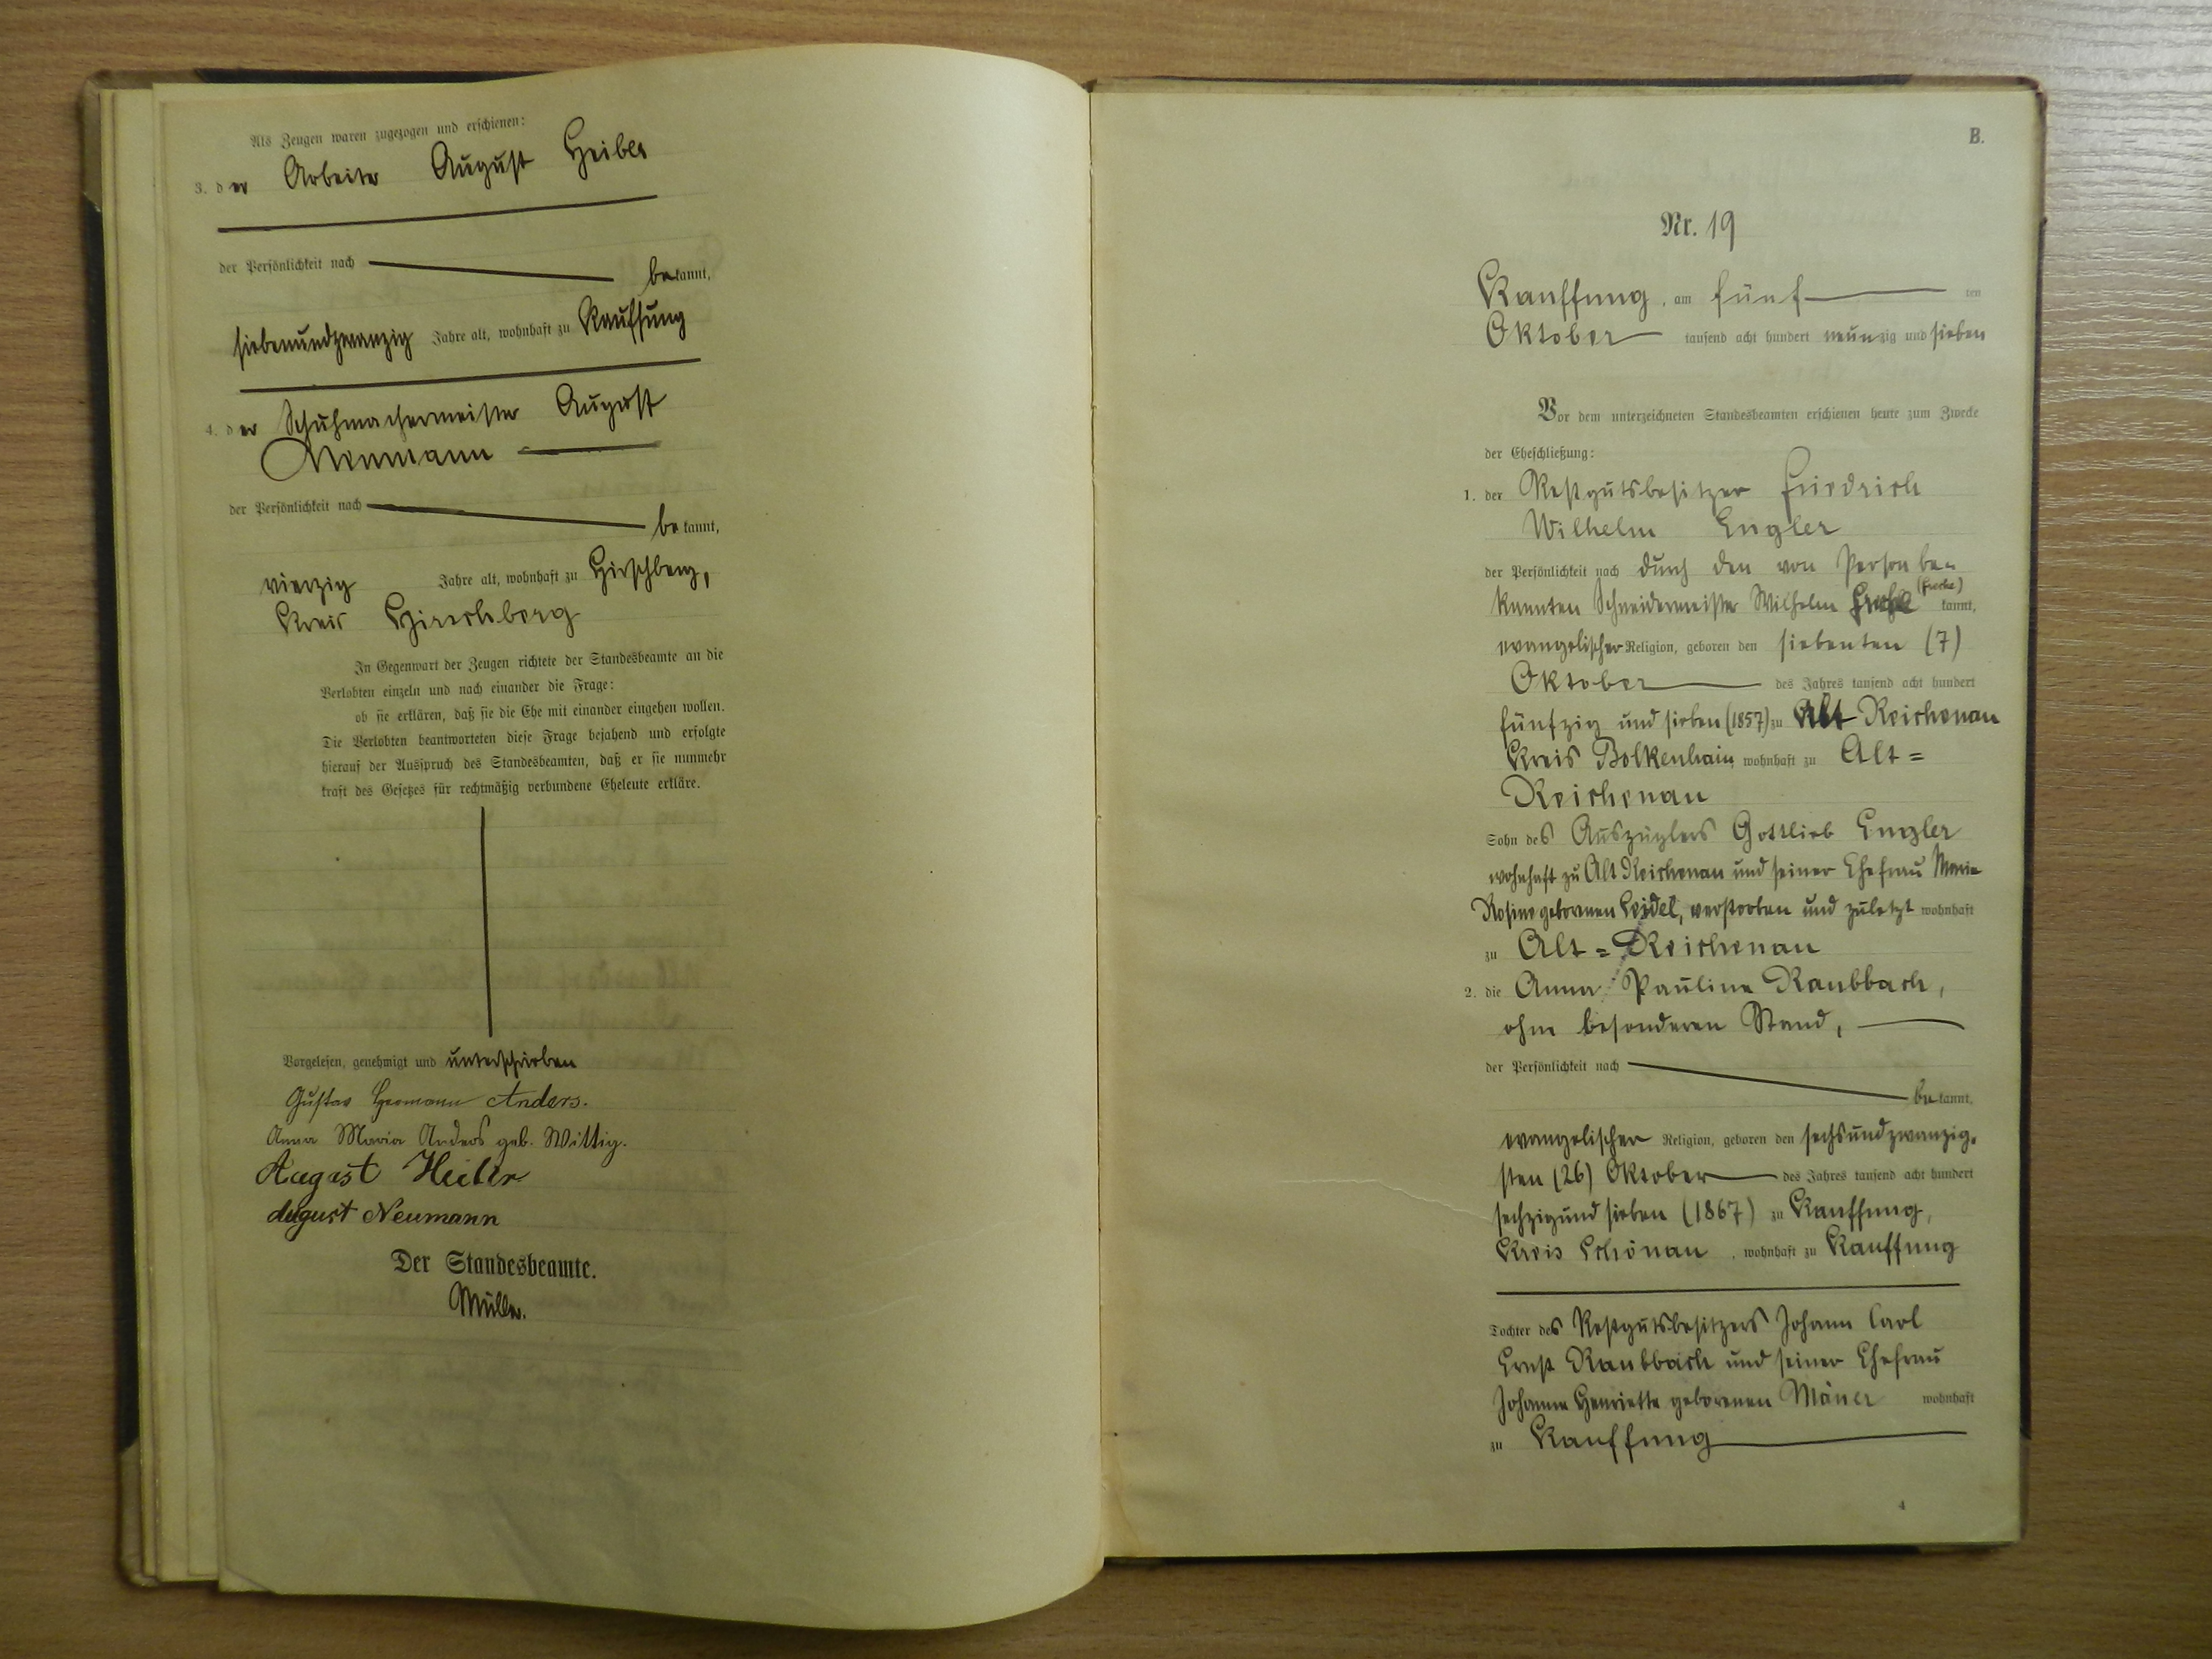 Als Zeugen waren zugezogen und erschienen:
3. der Arbeiter August Heibler
der Persönlichkeit nach
bekannt,
siebenundzwanzig Jahre alt, wohnhaft zu Kauffung
4. der Schuhmachermeister August
Neumann
der Persönlichkeit nach
bekannt,
vierzig Jahre alt, wohnhaft zu Hirschberg,
Kreis Hirschberg
In Gegenwart der Zeugen richtete der Standesbeamte an die
Verlobten einzeln und nach einander die Frage:
ob sie erklären, daß sie die Ehe mit einander eingehen wollen.
Die Verlobten beantworteten diese Frage bejahend und erfolgte
hierauf der Ausspruch des Standesbeamten, daß er sie nunmehr
kraft des Gesetzes für rechtmäßig verbundene Eheleute erkläre.
Vorgelesen, genehmigt und unterschrieben
Gustav Hermann Anders.
Anna Maria Anders geb. Wittig.
August
August Neumann
Der Standesbeamte.
Müller.
B.
Nr. 19
Kauffung, am fünf ten
Oktober tausend acht hundert neunzig und sieben
Vor dem unterzeichneten Standesbeamten erschienen heute zum Zwecke
der Eheschließung:
1. der Restgutsbesitzer Friedrich
Wilhelm Engler
der Persönlichkeit nach durch den von Person be-
kannten Schneidermeister Wilhelm kannt,
evangelischer Religion, geboren den siebenten (7)
Oktober des Jahres tausend acht hundert
fünfzig und sieben (1857) zu Alt Reichenau
Kreis Bolkenhain, wohnhaft zu Alt=
Reichenau
Sohn des Auszüglers Gottlieb Engler
wohnhaft zu Alt Reichenau und seiner Ehefrau Marie
Rosine geborenen Seidel, verstorben und zuletzt wohnhaft
zu Alt=Reichenau
2. die Anna Pauline Raubbach,
ohne besonderen Stand,
der Persönlichkeit nach
bekannt,
evangelischer Religion, geboren den sechsundzwanzig-
sten (26) Oktober des Jahres tausend acht hundert
sechzig und sieben (1867) zu Kauffung,
Kreis Schönau, wohnhaft zu Kauffung
Tochter des Restgutsbesitzers Johann Carl
Ernst Raubbach und seiner Ehefrau
Johanne Henriette geborenen wohnhaft
zu Kauffung
4